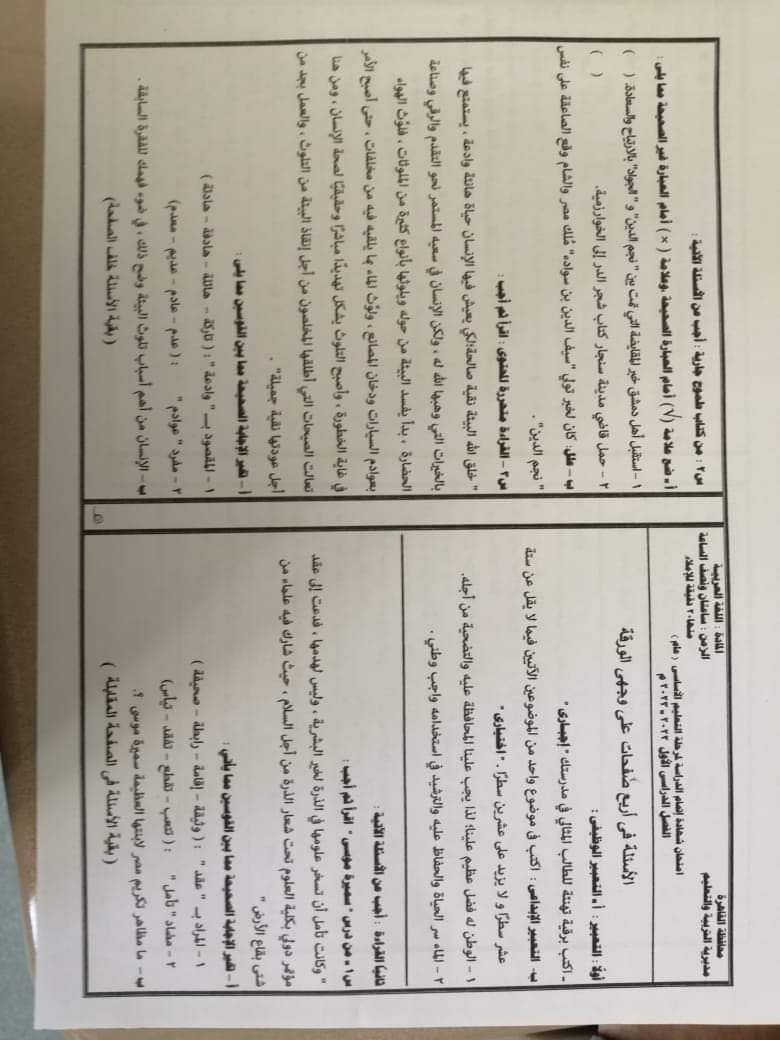 محافظة القاهرة
مديرية التربية والتعليم
امتحان شهادة إتمام الدراسة لمرحلة التعليم الأساسى ( عام )
الفصل الدراسى الأول ٢٠٢٢ - ٢٠٢٣ م
المادة : اللغة العربية
الزمن : ساعتان ونصف الساعة
منها ٢٠ دقيقة للإملاء
الأسئلة فى أربع صفحات على وجهى الورقة
أولاً : التعبير : أ - التعبير الوظيفى :
- اكتب برقية تهنئة للطالب المثالي في مدرستك " إجبارى "
ب- التعبير الإبداعى : اكتب فى موضوع واحد من الموضوعين الآتيين فيما لا يقل عن ستة
عشر سطرًا و لا يزيد على عشرين سطرًا . " اختيارى "
١ - الوطن له فضل عظيم علينا؛ لذا يجب علينا المحافظة عليه والتضحية من أجله.
٢ - الماء سر الحياة والحفاظ عليه والترشيد في استخدامه واجب وطني .
ثانيًا القراءة : أجب عن الأسئلة الآتية :
س١ - من درس " سميرة موسى " اقرأ ثم أجب :
" وكانت تأمل أن تسخر علومها في الذرة لخير البشرية ، وليس لهدمها ، فدعت إلى عقد
مؤتمر دولي بكلية العلوم تحت شعار الذرة من أجل السلام ، حيث شارك فيه علماء من
شتى بقاع الأرض "
أ - تخير الإجابة الصحيحة مما بين القوسين مما يأتي :
١ - المراد بـ " عقد " : ( وثيقة - إقامة - رابطة - صحيفة )
٢ - مضاد " تأمل " : ( تتعب - تقطع - تفقد - تيأس )
ب - ما مظاهر تكريم مصر لابنتها العظيمة سميرة موسى ؟.
( بقية الأسئلة فى الصفحة المقابلة )
س٢ : من كتاب طموح جارية : أجب عن الأسئلة الآتية :
أ - ضع علامة (√) أمام العبارة الصحيحة وعلامة (×) أمام العبارة غير الصحيحة مما يلى :
١ - استقبل أهل دمشق خبر المقايضة التي تمت بين " نجم الدين" و " الجواد" بالارتياح والسعادة. ( )
٢ - حمل قاضي مدينة سنجار كتاب شجر الدر إلى الخوارزمية. ( )
ب - علل: كان لخبر تولي " سيف الدين بن سوداه" مُلك مصر والشام وقع الصاعقة على نفس
" نجم الدين" .
س٣ - القراءة متحررة المحتوى : اقرأ ثم أجب :
" خلق الله البيئة نقية صالحة لكي يعيش فيها الإنسان حياة هانئة وادعة ، يستمتع فيها
بالخيرات التي وهبها الله له ، ولكن الإنسان في سعيه المستمر نحو التقدم والرقي وصناعة
الحضارة ، بدأ يفسد البيئة من حوله ويلوثها بأنواع كثيرة من الملوثات ، فلوَّث الهواء
بعوادم السيارات ودخان المصانع ، ولوَّث الماء بما يلقيه فيه من مخلفات ، حتى أصبح الأمر
في غاية الخطورة ، وأصبح التلوث يشكل تهديدًا مباشرًا وحقيقيًا لصحة الإنسان ، ومن هنا
تعالت الصيحات التي أطلقها المخلصون من أجل إنقاذ البيئة من التلوث ، والعمل بجد من
أجل عودتها نقية جميلة" .
أ - تخير الإجابة الصحيحة مما بين القوسين مما يلى :
١ - المقصود بـ " وادعة " : ( تاركة - هائلة - هادفة - هادئة )
٢ - مفرد " عوادم " : ( عدم - عادم - عديم - معدم)
ب - الإنسان من أهم أسباب تلوث البيئة وضح ذلك ، في ضوء فهمك للفقرة السابقة .
( بقية الأسئلة خلف الصفحة)